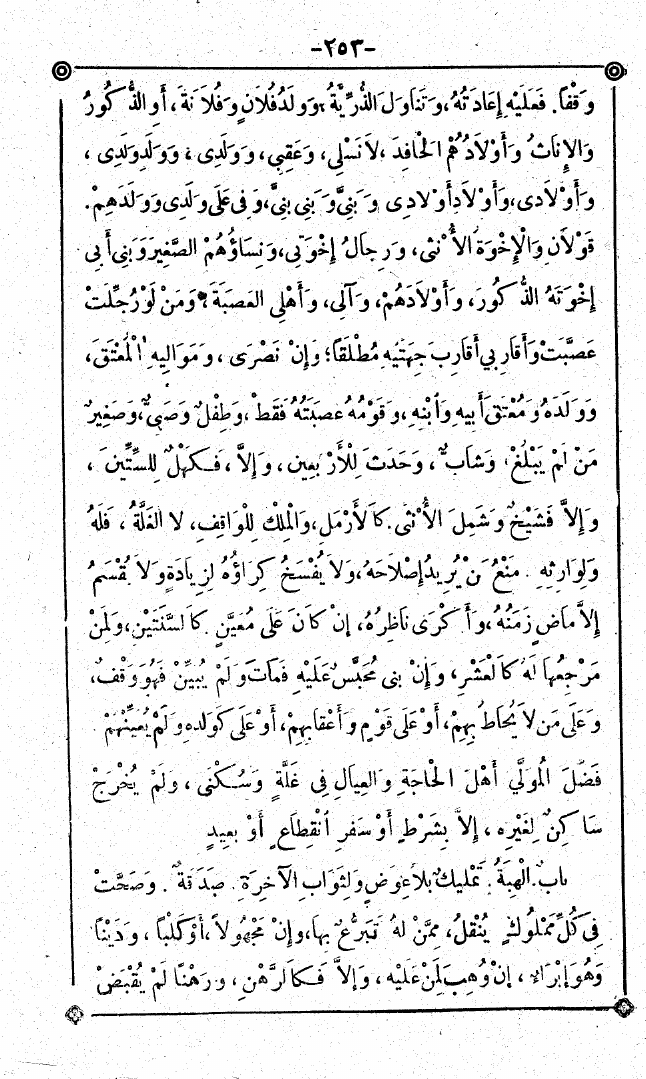 -٢٥٣-
وَقْفًا. فَعَلَيْهِ إِعَادَتُهُ، وَتَنَاوَلَ الذُّرِّيَّةُ؛ وَوَلَدُ فُلَانٍ وَفُلَانَةَ، أَوِ الذُّكُورُ
وَالإِنَاثُ وَأَوْلَادُهُمُ الْحَافِدَ، لَا نَسْلِي، وَعَقِبِي، وَوَلَدِي، وَوَلَدِ وَلَدِي،
وَأَوْلَادِي، وَأَوْلَادِ أَوْلَادِي وَبَنِيَّ وَبَنِي بَنِيَّ، وَفِي عَلَى وَلَدِي وَوَلَدِهِمْ.
قَوْلَانِ وَالْإِخْوَةُ الأُنْثَى، وَرِجَالُ إِخْوَتِي، وَنِسَاؤُهُمُ الصَّغِيرَ وَبَنِي أَبِي
إِخْوَتَهُ الذُّكُورَ، وَأَوْلَادَهُمْ، وَآلِي، وَأَهْلِي الْعَصَبَةَ؛ وَمَنْ لَوْ رُجِّلَتْ
عَصَّبَتْ وَأَقَارِبِي أَقَارِبَ جِهَتَيْهِ مُطْلَقًا؛ وَإِنْ نَصْرَى، وَمَوَالِيهِ الْمُعْتَقَ،
وَوَلَدَهُ وَمُعْتَقَ أَبِيهِ وَابْنِهِ، وَقَوْمُهُ عَصَبَتُهُ فَقَطْ، وَطِفْلٌ وَصَبِيٌّ، وَصَغِيرٌ
مَنْ لَمْ يَبْلُغْ وَشَابٌّ، وَحَدَثٌ لِلْأَرْبَعِينَ، وَإِلَّا، فَكَهْلٌ لِلسِّتِّينَ،
وَإِلَّا فَشَيْخٌ وَشَمِلَ الأُنْثَى. كَالأَرْمَلِ، وَالْمِلْكُ لِلْوَاقِفِ، لَا الْغَلَّةُ، فَلَهُ
وَلِوَارِثِهِ. مَنْعُ مَنْ يُرِيدُ إِصْلَاحَهُ، وَلَا يُفْسَخُ كِرَاؤُهُ لِزِيَادَةٍ وَلَا يُقْسَمُ
إِلَّا مَاضٍ زَمَنُهُ، وَأَكْرَى نَاظِرُهُ، إِنْ كَانَ عَلَى مُعَيَّنٍ. كَالسَّنَتَيْنِ، وَلِمَنْ
مَرْجِعُهَا لَهُ كَالْعَشْرِ، وَإِنْ بَنَى مُحَبَّسٌ عَلَيْهِ فَمَاتَ وَلَمْ يُبَيِّنْ فَهُوَ وَقْفٌ،
وَعَلَى مَنْ لَا يُحَاطُ بِهِمْ، أَوْ عَلَى قَوْمٍ وَأَعْقَابِهِمْ، أَوْ عَلَى كَوَلَدِهِ وَلَمْ يُعَيِّنْهُمْ
فَضَّلَ الْمُوَلَّي أَهْلَ الْحَاجَةِ وَالْعِيَالِ فِي غَلَّةٍ وَسُكْنَى، وَلَمْ يُخْرَجْ
سَاكِنٌ لِغَيْرِهِ، إِلَّا بِشَرْطٍ أَوْ سَفَرِ انْقِطَاعٍ أَوْ بَعِيدٍ
بَابٌ. الْهِبَةُ. تَمْلِيكٌ بِلَا عِوَضٍ وَلِثَوَابِ الآخِرَةِ. صَدَقَةٌ. وَصَحَّتْ
فِي كُلِّ مَمْلُوكٍ يُنْقَلُ، مِمَّنْ لَهُ تَبَرُّعٌ بِهَا، وَإِنْ مَجْهُولًا، أَوْ كَلْبًا، وَدَيْنًا
وَهُوَ إِبْرَاءٌ، إِنْ وُهِبَ لِمَنْ عَلَيْهِ، وَإِلَّا فَكَالرَّهْنِ، وَرَهْنًا لَمْ يُقْبَضْ